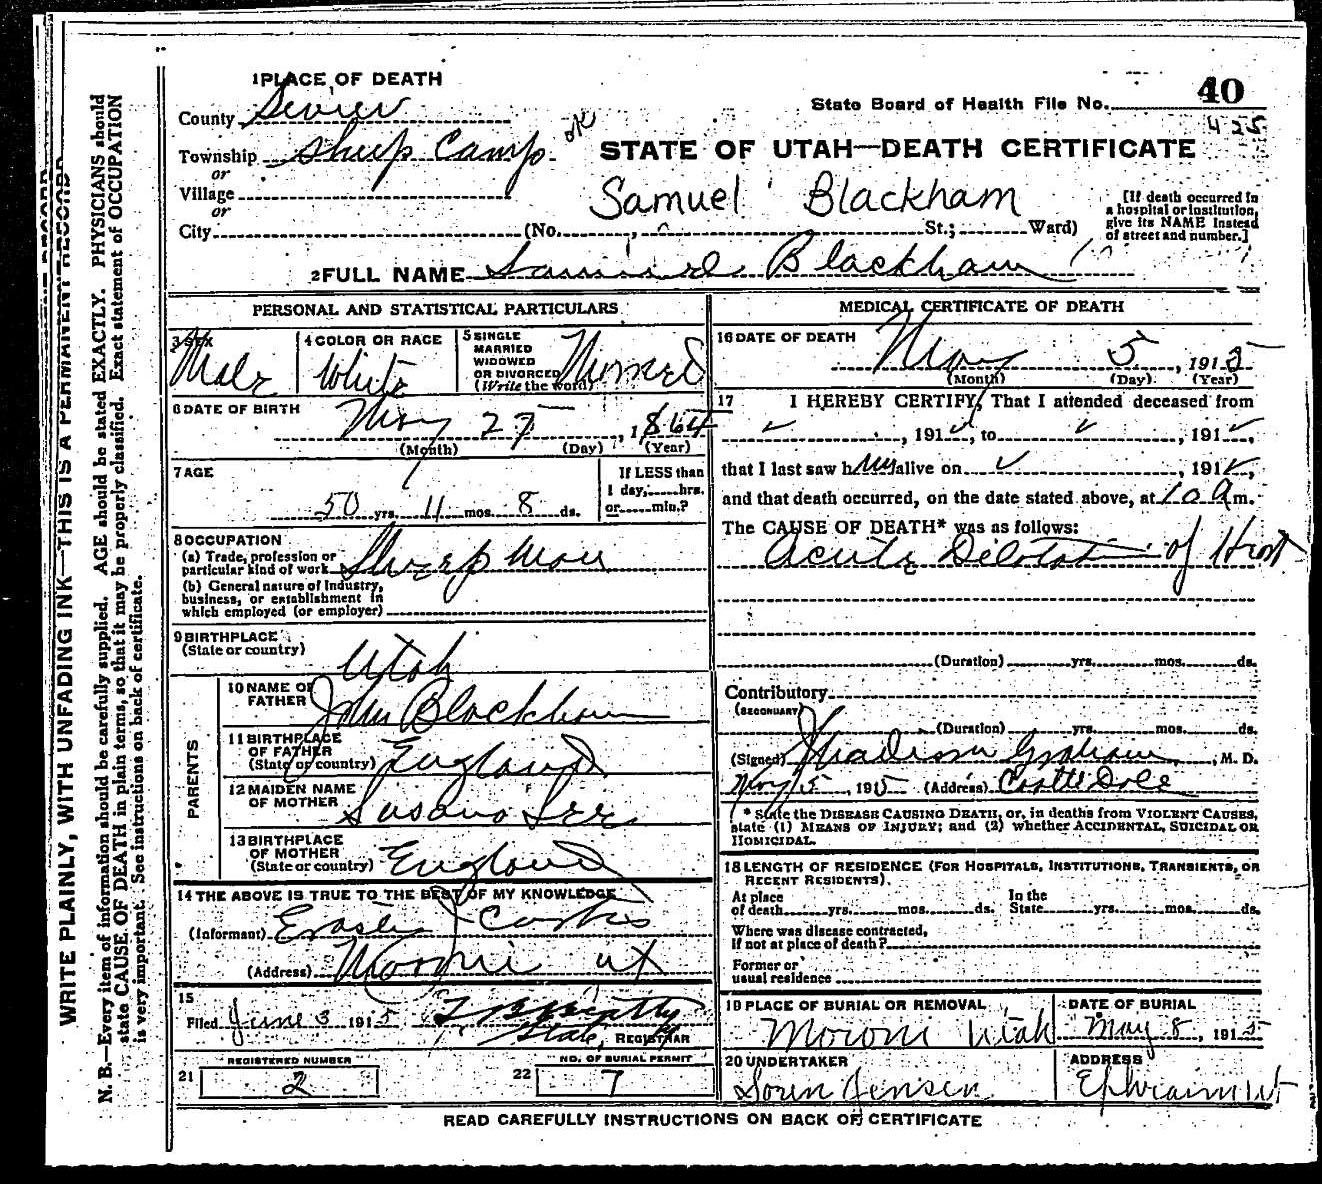 1 PLACE OF DEATH
County Sevier
State Board of Health File No. 40
425
Township Sheep Camp ok
or
STATE OF UTAH—DEATH CERTIFICATE
Village
or
Samuel Blackham
[If death occurred in a hospital or institution, give its NAME instead of street and number.]
City (No. , St.; Ward)
2 FULL NAME Samuel Blackham
PERSONAL AND STATISTICAL PARTICULARS
3 SEX Male
4 COLOR OR RACE White
5 SINGLE MARRIED WIDOWED OR DIVORCED (Write the word) Married
6 DATE OF BIRTH May 27, 1864
(Month) (Day) (Year)
7 AGE
50 yrs. 11 mos. 8 ds.
If LESS than 1 day, hrs. or min.?
8 OCCUPATION
(a) Trade, profession or particular kind of work Sheep Man
(b) General nature of Industry, business, or establishment in which employed (or employer)
9 BIRTHPLACE (State or country) Utah
PARENTS
10 NAME OF FATHER John Blackham
11 BIRTHPLACE OF FATHER (State or country) England
12 MAIDEN NAME OF MOTHER Susana Lee
13 BIRTHPLACE OF MOTHER (State or country) England
14 THE ABOVE IS TRUE TO THE BEST OF MY KNOWLEDGE
(Informant)
(Address) Moroni Ut
15
Filed June 3 1915 T B Beatty
State, REGISTRAR
REGISTERED NUMBER
21 2
NO. OF BURIAL PERMIT
22 7
MEDICAL CERTIFICATE OF DEATH
16 DATE OF DEATH May 5, 1915
(Month) (Day) (Year)
17 I HEREBY CERTIFY, That I attended deceased from
, 191 , to , 191 ,
that I last saw him alive on , 191 ,
and that death occurred, on the date stated above, at 10 a m.
The CAUSE OF DEATH* was as follows:
Acute Dilotation of Heart
(Duration) yrs. mos. ds.
Contributory
(SECONDARY)
(Duration) yrs. mos. ds.
(Signed) Graham, M. D.
May 5, 1915 (Address) Castle Dale
* State the DISEASE CAUSING DEATH, or, in deaths from VIOLENT CAUSES, state (1) MEANS OF INJURY; and (2) whether ACCIDENTAL, SUICIDAL OR HOMICIDAL.
18 LENGTH OF RESIDENCE (FOR HOSPITALS, INSTITUTIONS, TRANSIENTS, OR RECENT RESIDENTS).
At place of death yrs. mos. ds. In the State yrs. mos. ds.
Where was disease contracted, If not at place of death?
Former or usual residence
19 PLACE OF BURIAL OR REMOVAL Moroni Utah
DATE OF BURIAL May 8, 1915
20 UNDERTAKER Soren Jensen
ADDRESS Ephraim Ut
READ CAREFULLY INSTRUCTIONS ON BACK OF CERTIFICATE
WRITE PLAINLY, WITH UNFADING INK—THIS IS A PERMANENT RECORD
N. B.—Every item of information should be carefully supplied. AGE should be stated EXACTLY. PHYSICIANS should
state CAUSE OF DEATH in plain terms, so that it may be properly classified. Exact statement of OCCUPATION
is very important. See instructions on back of certificate.